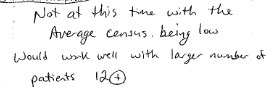 Not at this time with the
Average census. being low
Would work well with larger number of
patients 12+